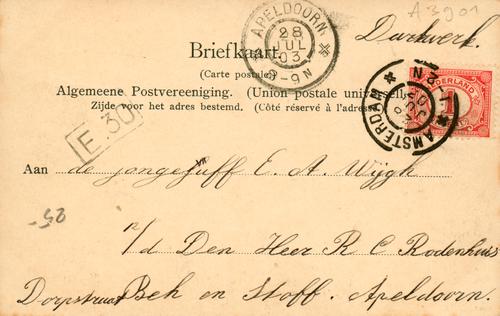 A3901
APELDOORN
28
JUL
03
8-9N
Drukwerk.
Briefkaart
(Carte postale)
Algemeene Postvereeniging. (Union postale universelle)
Zijde voor het adres bestemd. (Côté réservé à l'adresse)
NEDERLAND
AMSTERDAM
E. 30
Aan de jongejuff E. A. Wijgh
25-
p/d Den Heer R C Rodenhuis
Dorpstraat Beh en Stoff. Apeldoorn.